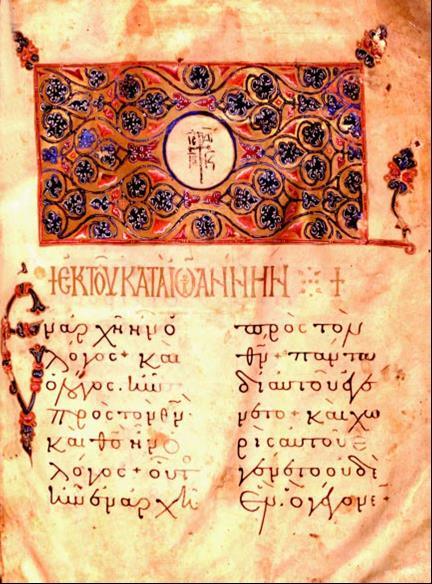 + ΕΚ ΤΟΥ ΚΑΤΑ ΙΩΑΝΝΗΝ ⁘ +
Ἐν ἀρχῆ ἦν ὁ
λόγος + καὶ
ὁ λόγος. ἦν
πρὸς τὸν θν·
καὶ θς ἦν ὁ
λόγος + οὗτος
ἦν ἐν ἀρχῆ
πρὸς τὸν
θν + πάντα
δι αυτοῦ ἐγέ
νετο + καὶ χω
ρὶς αυτοῦ ἐ
γένετο οὐδὲ
ἕν. ὃ γέγονε +